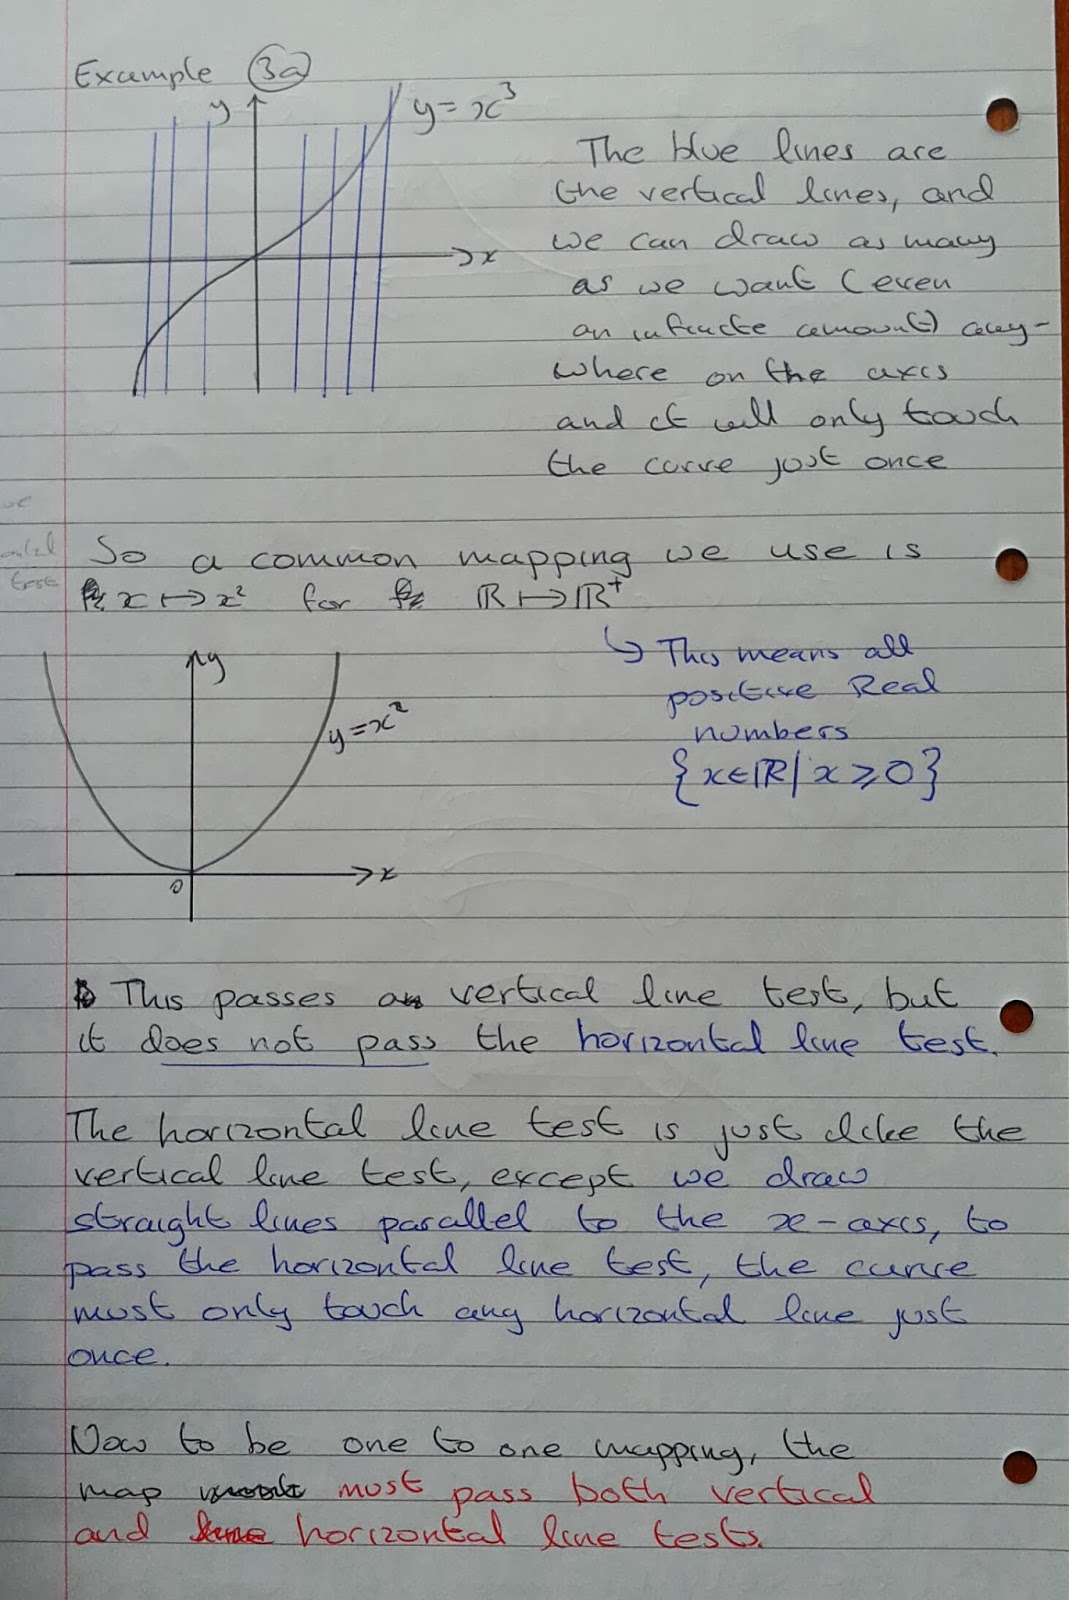 Example 3a
y
y = x³
x
The blue lines are
the vertical lines, and
we can draw as many
as we want (even
an infinite amount) any-
where on the axis
and it will only touch
the curve just once
So a common mapping we use is
x ↦ x² for ℝ ↦ ℝ⁺
↳ This means all
positive Real
numbers
{x ∈ ℝ | x ≥ 0}
y
y = x²
0
x
This passes a vertical line test, but
it does not pass the horizontal line test.
The horizontal line test is just like the
vertical line test, except we draw
straight lines parallel to the x-axis, to
pass the horizontal line test, the curve
must only touch any horizontal line just
once.
Now to be one to one mapping, the
map must pass both vertical
and horizontal line tests.